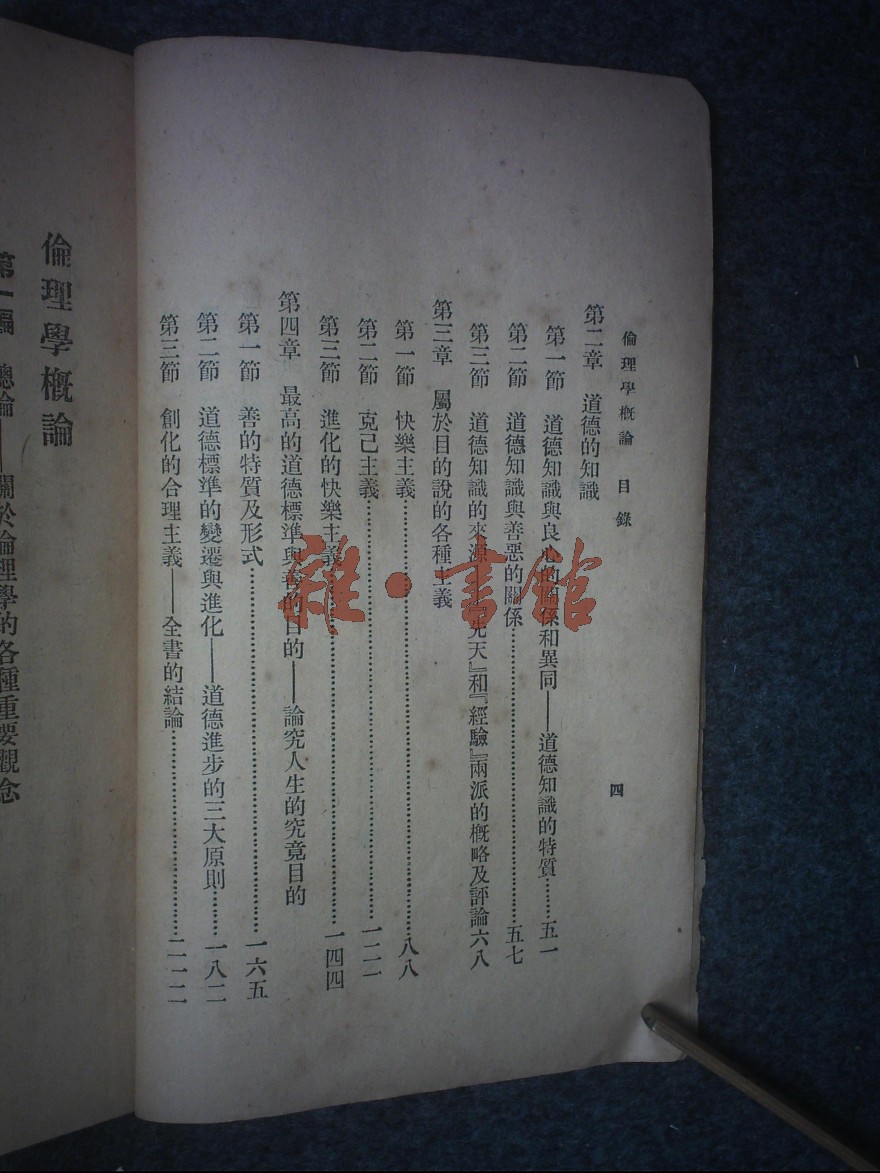 倫理學概論　目錄
四
第二章　道德的知識
第一節　道德知識與良心的關係和異同——道德知識的特質………五一
第二節　道德知識與善惡的關係………五七
第三節　道德知識的來源『先天』和『經驗』兩派的概略及評論六八
第三章　屬於目的說的各種主義
第一節　快樂主義………八八
第二節　克己主義………一二一
第三節　進化的快樂主義………一四四
第四章　最高的道德標準與善的目的——論究人生的究竟目的
第一節　善的特質及形式………一六五
第二節　道德標準的變遷與進化——道德進步的三大原則………一八二
第三節　創化的合理主義——全書的結論………二一二
倫理學概論
第一編　總論——關於倫理學的各種重要觀念
雜·書館